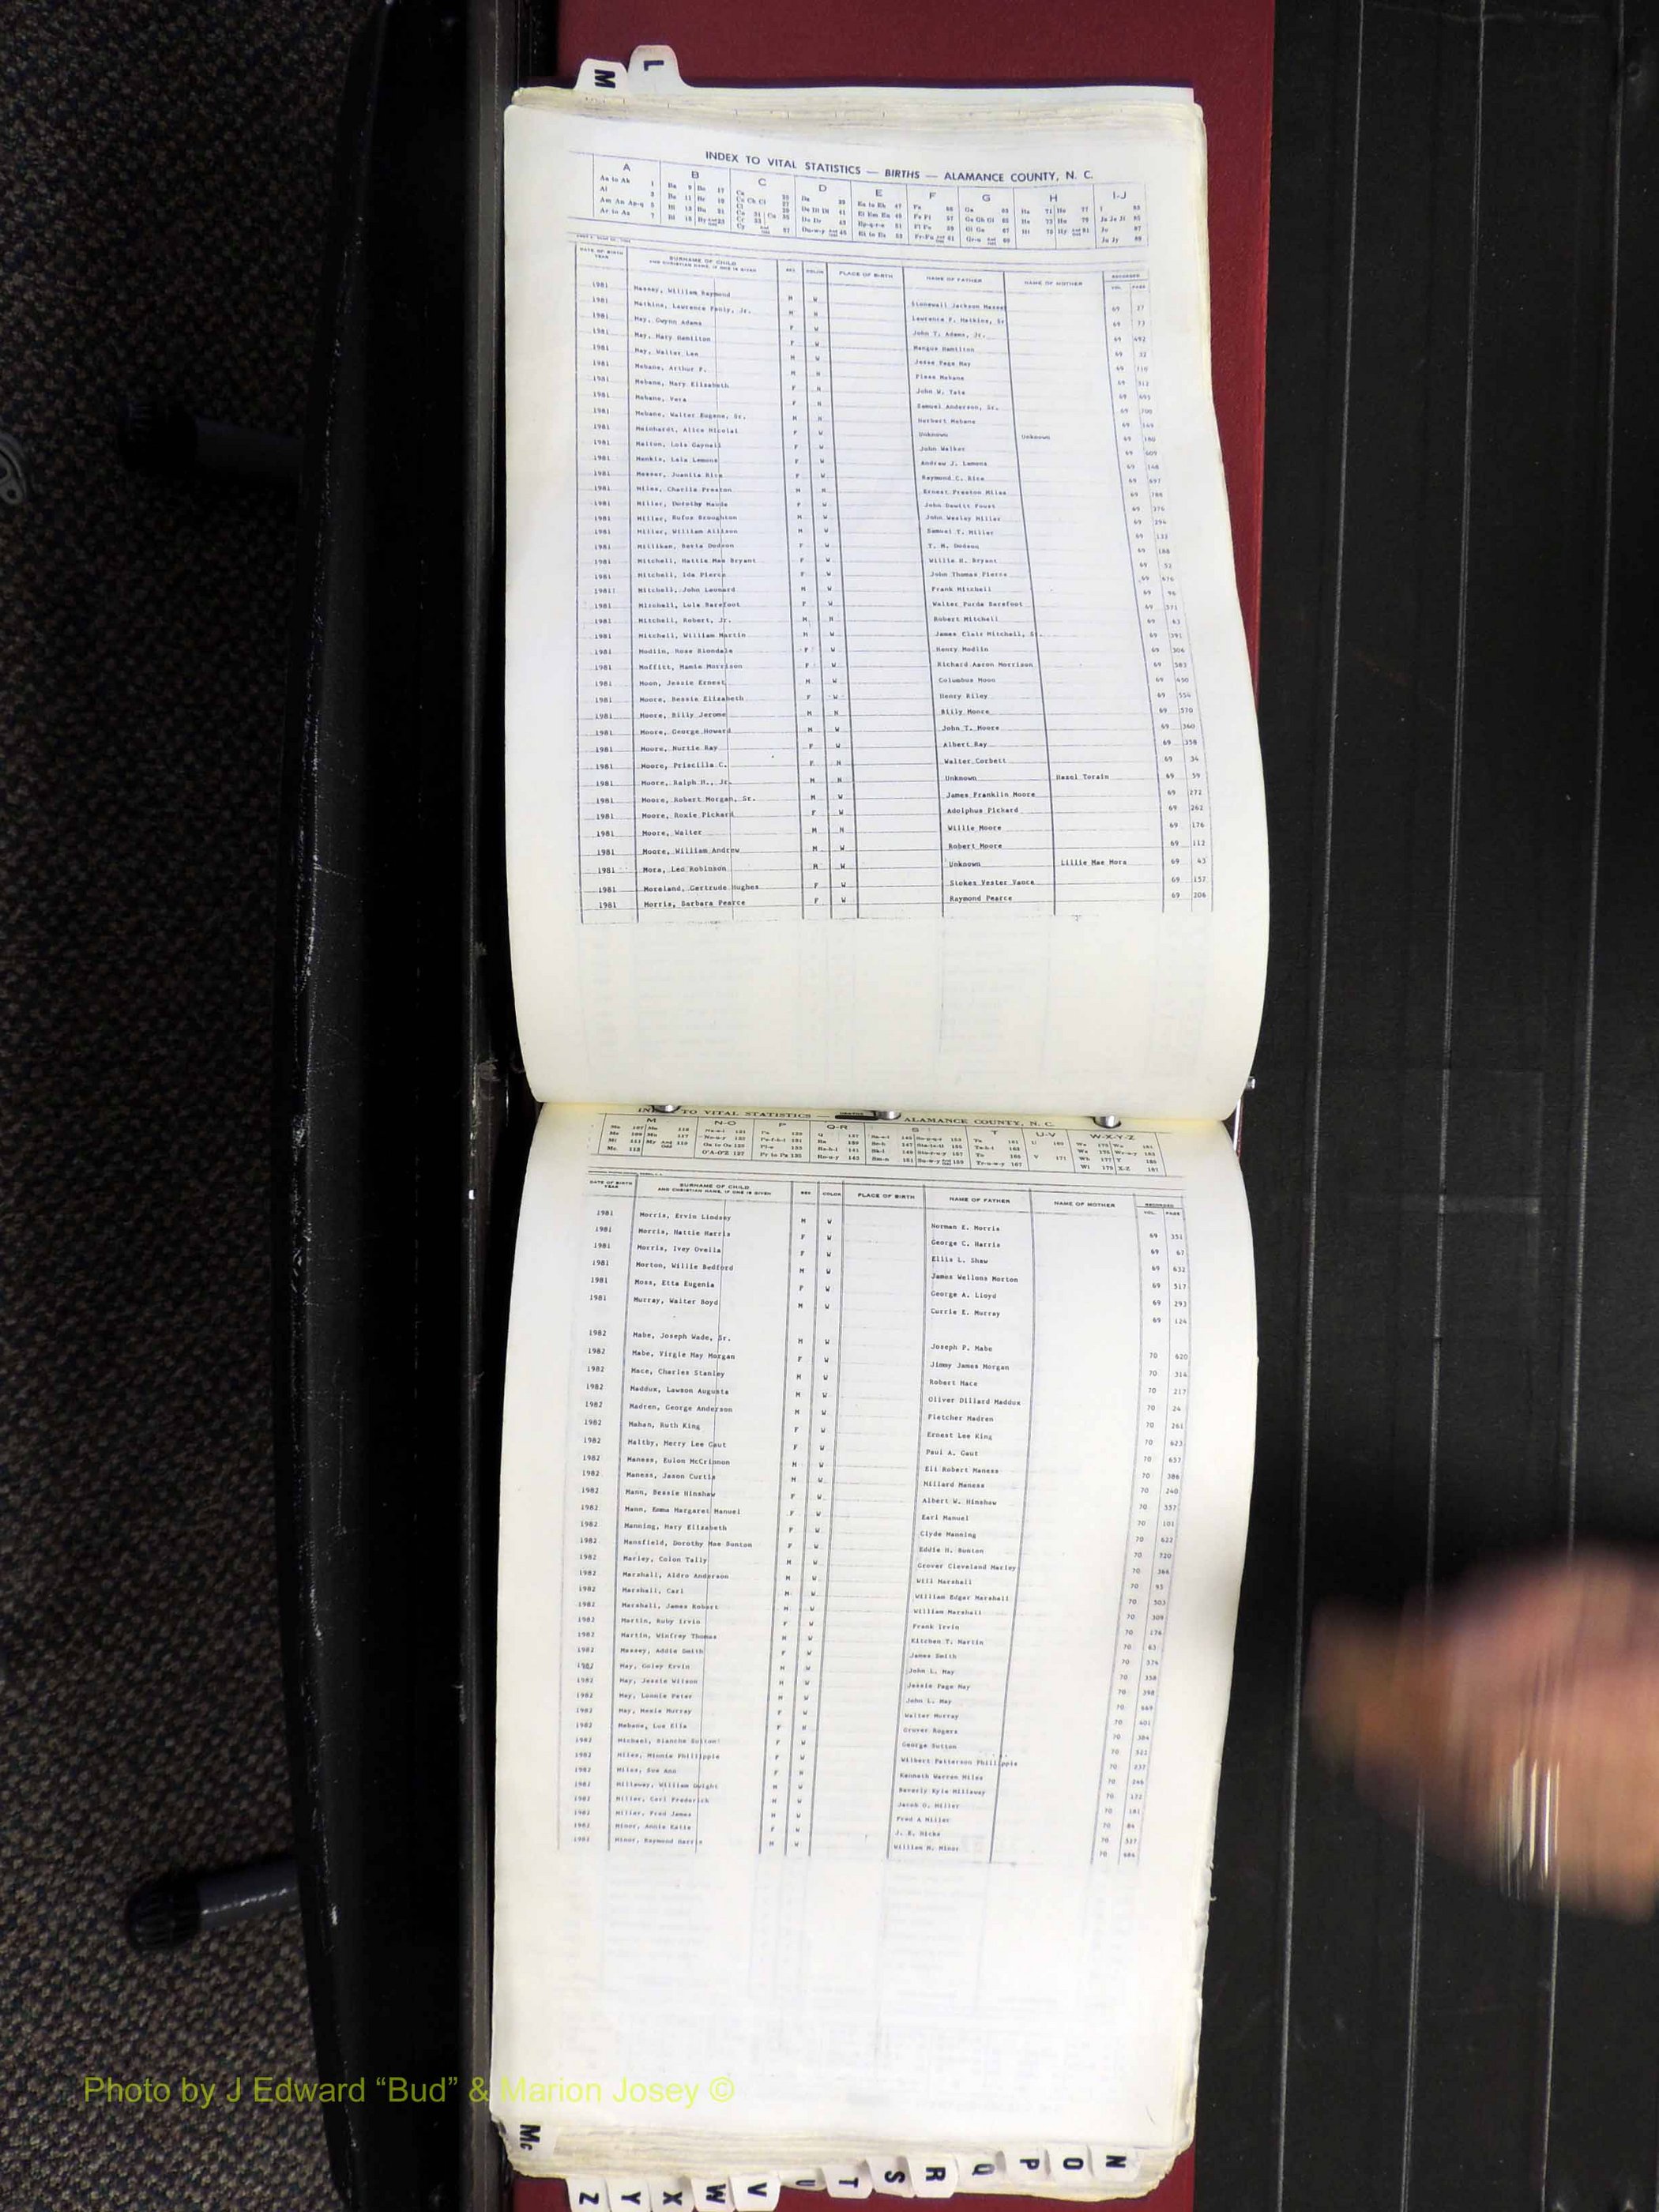 L
M
INDEX TO VITAL STATISTICS — BIRTHS — ALAMANCE COUNTY, N. C.
A B C D E F G H I-J
DATE OF BIRTH YEAR SURNAME OF CHILD AND CHRISTIAN NAME, IF ONE IS GIVEN SEX COLOR PLACE OF BIRTH NAME OF FATHER NAME OF MOTHER RECORDED VOL. PAGE
1981 Massey, William Raymond M W Stonewall Jackson Massey 69 27
1981 Matkins, Lawrence Penly, Jr. M N Lawrence F. Matkins, Sr 69 73
1981 May, Gwynn Adams F W John T. Adams, Jr. 69 492
1981 May, Mary Hamilton F W Mangus Hamilton 69 32
1981 May, Walter Lee M W Jesse Page May 69 110
1981 Mebane, Arthur F. M N Pleas Mebane 69 312
1981 Mebane, Mary Elizabeth F N John W. Tate 69 695
1981 Mebane, Vera F N Samuel Anderson, Sr. 69 700
1981 Mebane, Walter Eugene, Sr. M N Herbert Mebane 69 169
1981 Meinhardt, Alice Nicolai F W Unknown Unknown 69 180
1981 Melton, Lois Gaynell F W John Walker 69 609
1981 Menkis, Lala Lemons F W Andrew J. Lemons 69 168
1981 Messer, Juanita Rice F W Raymond C. Rice 69 697
1981 Miles, Charlie Preston M N Ernest Preston Miles 69 788
1981 Miller, Dorothy Maude F W John Dewitt Foust 69 376
1981 Miller, Rufus Broughton M W John Wesley Miller 69 294
1981 Miller, William Allison M W Samuel T. Miller 69 133
1981 Milliken, Betta Dodson F W T. M. Dodson 69 188
1981 Mitchell, Hattie Mae Bryant F W Willie H. Bryant 69 52
1981 Mitchell, Ida Pierce F W John Thomas Pierce 69 676
1981 Mitchell, John Leonard M W Frank Mitchell 69 96
1981 Mitchell, Lula Barefoot F W Walter Purde Barefoot 69 371
1981 Mitchell, Robert, Jr. M N Robert Mitchell 69 63
1981 Mitchell, William Martin M W James Clair Mitchell, Sr. 69 391
1981 Modlin, Rose Siondale F W Henry Modlin 69 306
1981 Moffitt, Mamie Morrison F W Richard Aaron Morrison 69 583
1981 Moon, Jessie Ernest M W Columbus Moon 69 450
1981 Moore, Bessie Elizabeth F W Henry Riley 69 554
1981 Moore, Billy Jerome M N Billy Moore 69 570
1981 Moore, George Howard M W John T. Moore 69 360
1981 Moore, Nurtie Ray F W Albert Ray 69 358
1981 Moore, Priscilla C. F N Walter Corbett 69 34
1981 Moore, Ralph H., Jr. M N Unknown Hazel Torain 69 59
1981 Moore, Robert Morgan, Sr. M W James Franklin Moore 69 272
1981 Moore, Roxie Pickard F W Adolphus Pickard 69 262
1981 Moore, Walter M N Willie Moore 69 176
1981 Moore, William Andrew M W Robert Moore 69 112
1981 Mora, Leo Robinson M W Unknown Lillie Mae Mora 69 43
1981 Moreland, Gertrude Hughes F W Stokes Vester Vance 69 157
1981 Morris, Barbara Pearce F W Raymond Pearce 69 206
TO VITAL STATISTICS — ALAMANCE COUNTY, N. C.
M N-O P Q-R S T U-V W-X-Y-Z
DATE OF BIRTH YEAR SURNAME OF CHILD AND CHRISTIAN NAME, IF ONE IS GIVEN SEX COLOR PLACE OF BIRTH NAME OF FATHER NAME OF MOTHER RECORDED VOL. PAGE
1981 Morris, Ervin Lindsey M W Norman E. Morris 69 351
1981 Morris, Hattie Harris F W George C. Harris 69 67
1981 Morris, Ivey Ovelia F W Ellis L. Shaw 69 632
1981 Morton, Willie Bedford M W James Wellons Morton 69 517
1981 Moss, Etta Eugenia F W George A. Lloyd 69 293
1981 Murray, Walter Boyd M W Currie E. Murray 69 124
1982 Mabe, Joseph Wade, Sr. M W Joseph P. Mabe 70 620
1982 Mabe, Virgie May Morgan F W Jimmy James Morgan 70 314
1982 Mace, Charles Stanley M W Robert Mace 70 217
1982 Maddux, Lawson Augusta M W Oliver Dillard Maddux 70 24
1982 Madren, George Anderson M W Fletcher Madren 70 261
1982 Mahan, Ruth King F W Ernest Lee King 70 623
1982 Maltby, Merry Lee Gaut F W Paul A. Gaut 70 637
1982 Maness, Eulon McCrinnon M W Eli Robert Maness 70 386
1982 Maness, Jason Curtis M W Millard Maness 70 240
1982 Mann, Bessie Hinshaw F W Albert W. Hinshaw 70 357
1982 Mann, Emma Margaret Manuel F W Earl Manuel 70 101
1982 Manning, Mary Elizabeth F W Clyde Manning 70 622
1982 Mansfield, Dorothy Mae Bunton F W Eddie H. Bunton 70 720
1982 Marley, Colon Tally M W Grover Cleveland Marley 70 366
1982 Marshall, Aldro Anderson M W Will Marshall 70 93
1982 Marshall, Carl M W William Edgar Marshall 70 503
1982 Marshall, James Robert M W William Marshall 70 309
1982 Martin, Ruby Irvin F W Frank Irvin 70 176
1982 Martin, Winfrey Thomas M W Kitchen T. Martin 70 63
1982 Massey, Addie Smith F W James Smith 70 574
1982 May, Goley Ervin M W John L. May 70 358
1982 May, Jessie Wilson M W Jessie Page May 70 398
1982 May, Lonnie Peter M W John L. May 70 669
1982 May, Moxie Murray F W Walter Murray 70 401
1982 Mebane, Lue Ella F N Grover Rogers 70 384
1982 Michael, Blanche Sutton F W George Sutton 70 521
1982 Miles, Minnie Phillippie F W Wilbert Patterson Phillippie 70 237
1982 Miles, Sue Ann F W Kenneth Warren Miles 70 246
1982 Millaway, William Dwight M W Beverly Kyle Millaway 70 172
1982 Miller, Carl Frederick M W Jacob O. Miller 70 181
1982 Miller, Fred James M W Fred A Miller 70 84
1982 Minor, Annie Katie F W J. E. Hicks 70 527
1982 Minor, Raymond Harris M W William H. Minor 70 684
Photo by J Edward “Bud” & Marion Josey ©
Mc
N O P Q R S T U V W X Y Z